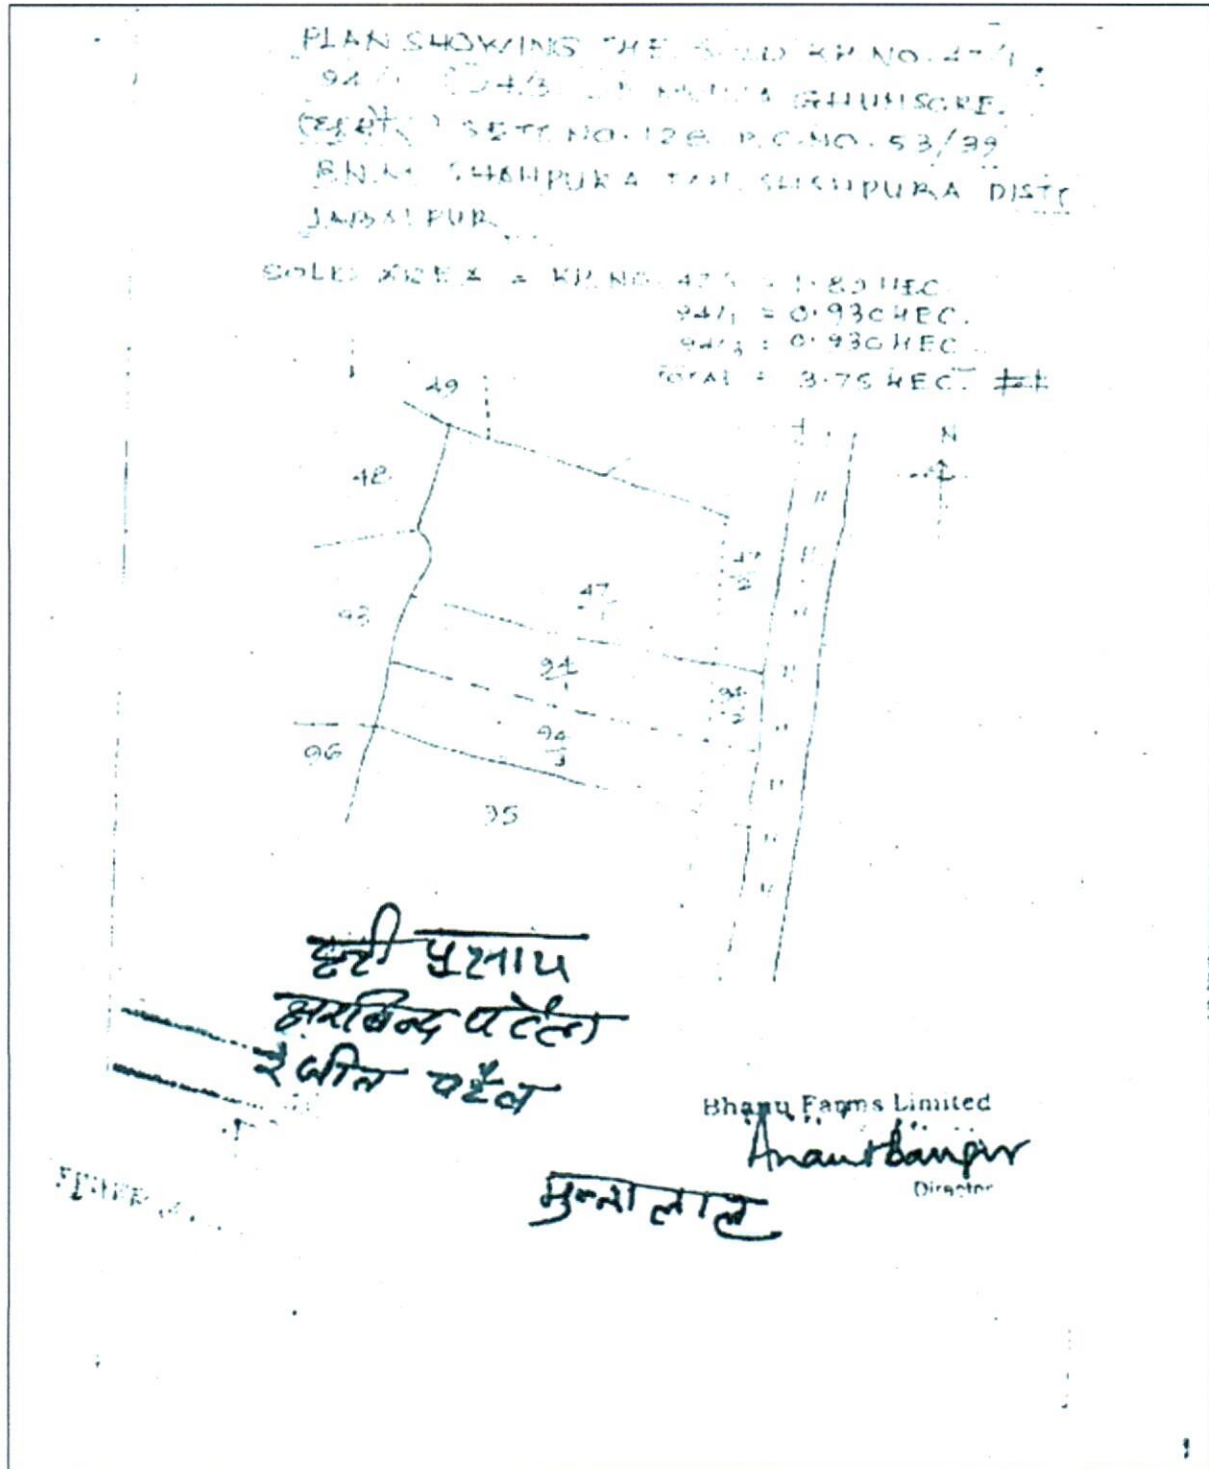 PLAN SHOWING THE SOLD KH NO. 47/1,
94/1 94/3 GHUNSORE.
SETT NO. 128 P.C. NO. 53/39
R.N.M. SHAHPURA SHAHPURA DISTT
JABALPUR
SOLD AREA = KH. NO. = 1.89 HEC
94/1 = 0.930 HEC.
94/3 = 0.930 HEC
TOTAL = 3.75 HEC.
49
N
48
47/2
47/1
94/1
94/2
94/3
96
95
प्रसाद
अरबिन्द पटेल
पटेल
Bhanu Farms Limited
Anant Bangur
Director
मुन्ना लाल